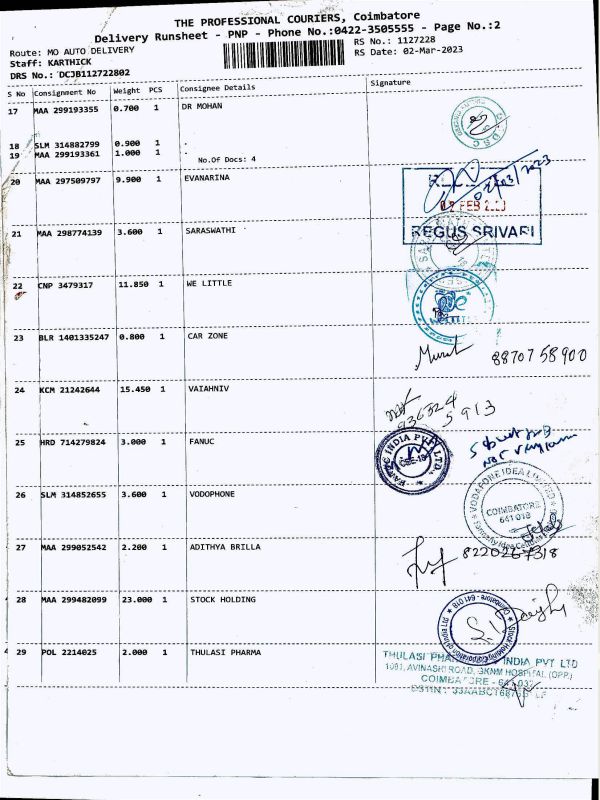 THE PROFESSIONAL COURIERS, Coimbatore
Delivery Runsheet - PNP - Phone No.:0422-3505555 - Page No.:2
Route: MO AUTO DELIVERY
RS No.: 1127228
Staff: KARTHICK
RS Date: 02-Mar-2023
DRS No.: DCJB112722802
S No Consignment No Weight PCS Consignee Details Signature
17 MAA 299193355 0.700 1 DR MOHAN
18 SLM 314882799 0.900 1 .
19 MAA 299193361 1.000 1 .
No.Of Docs: 4
20 MAA 297509797 9.900 1 EVANARINA
02/03/2023
FEB
REGUS SRIVARI
21 MAA 298774139 3.600 1 SARASWATHI
22 CNP 3479317 11.850 1 WE LITTLE
23 BLR 1401335247 0.800 1 CAR ZONE
8870758900
24 KCM 21242644 15.450 1 VAIAHNIV
5913
25 HRD 714279824 3.000 1 FANUC
FANUC INDIA PVT LTD.
CBE-18
26 SLM 314852655 3.600 1 VODOPHONE
VODAFONE IDEA LIMITED
COIMBATORE
641 018
27 MAA 299052542 2.200 1 ADITHYA BRILLA
8220267318
28 MAA 299482099 23.000 1 STOCK HOLDING
Stock Holding Corporation of India Ltd
Coimbatore - 641 018
29 POL 2214025 2.000 1 THULASI PHARMA
THULASI PHARMA INDIA PVT LTD
1081, AVINASHI ROAD, GKNM HOSPITAL (OPP)
COIMBATORE - 641 037